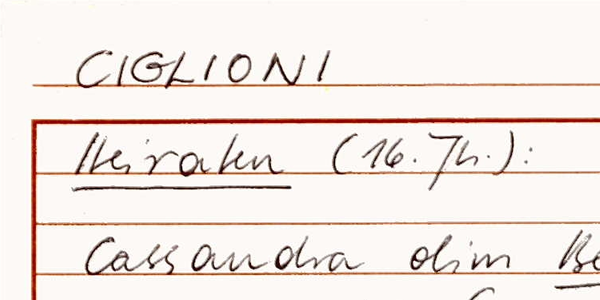 CIGLIONI
Heiraten (16. Jh.):
Cassandra olim Be